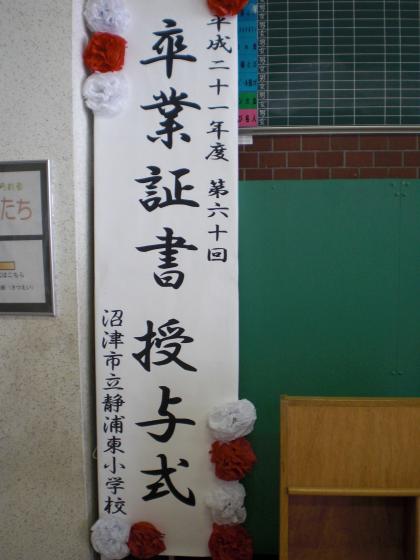 平成二十一年度 第六十回
卒業証書授与式
沼津市立静浦東小学校
たち